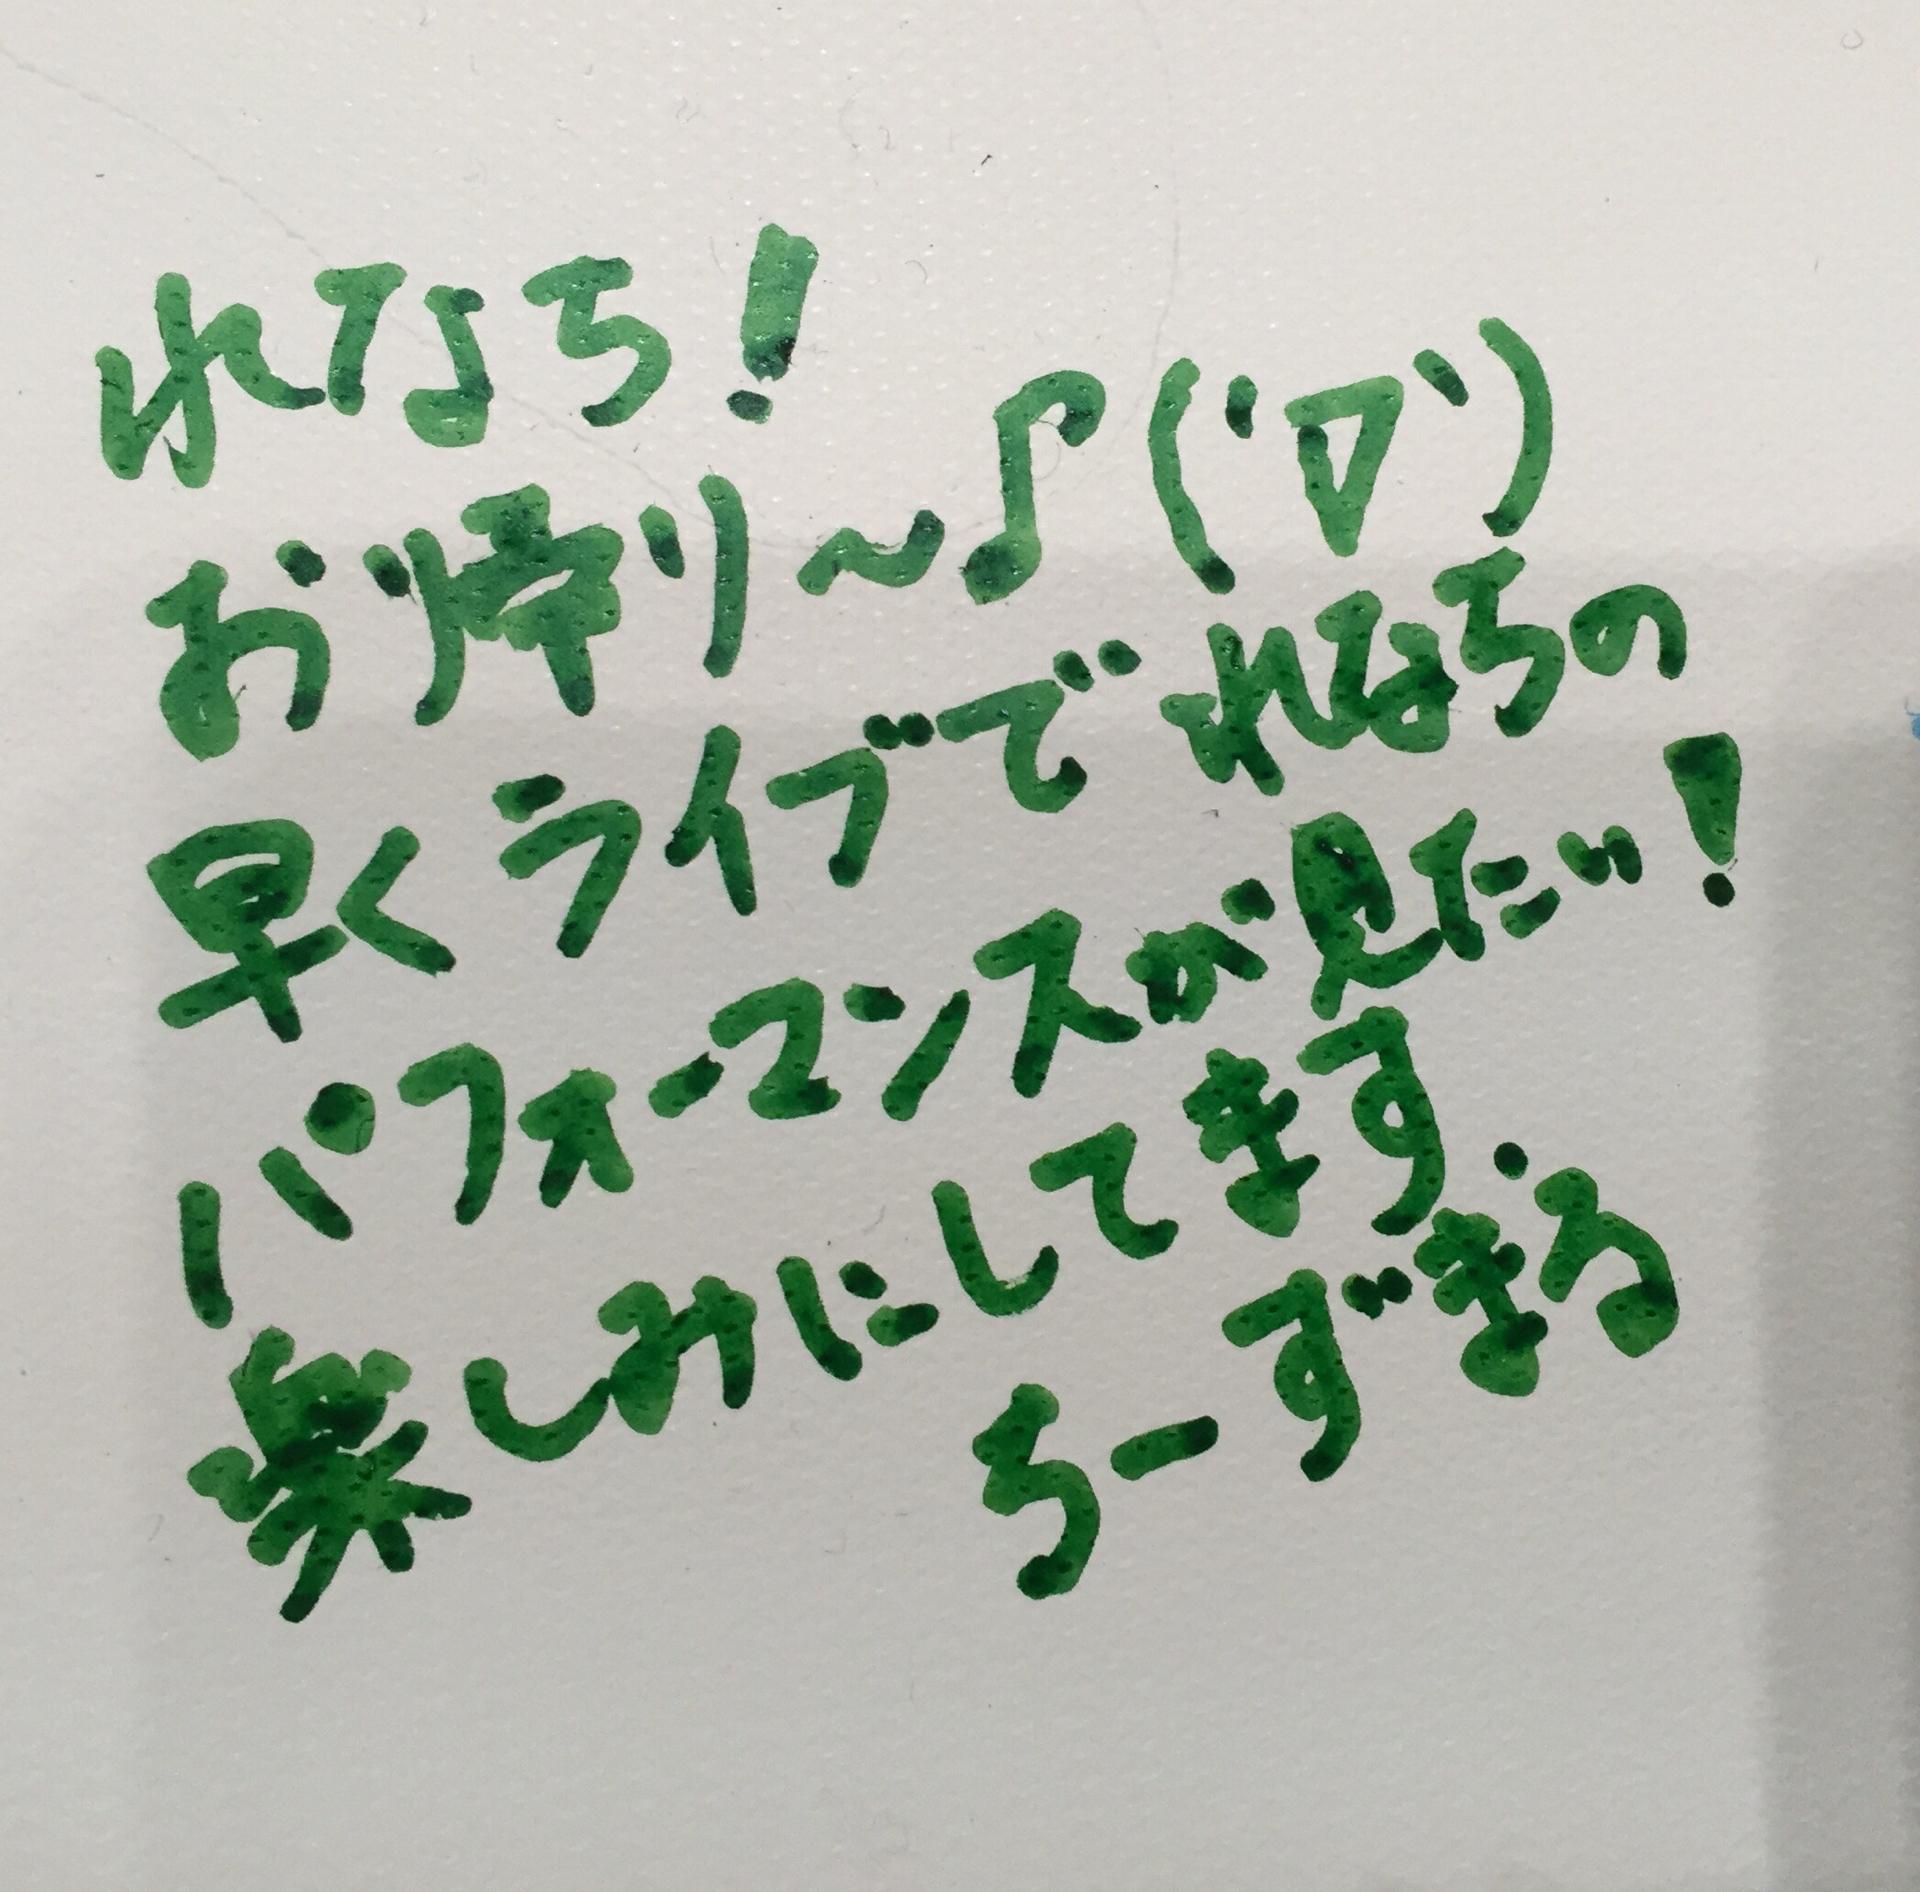 れなち!
お帰り～♪('▽')
早くライブでれなちの
パフォーマンスが見たい!
楽しみにしてます
ちーずまる